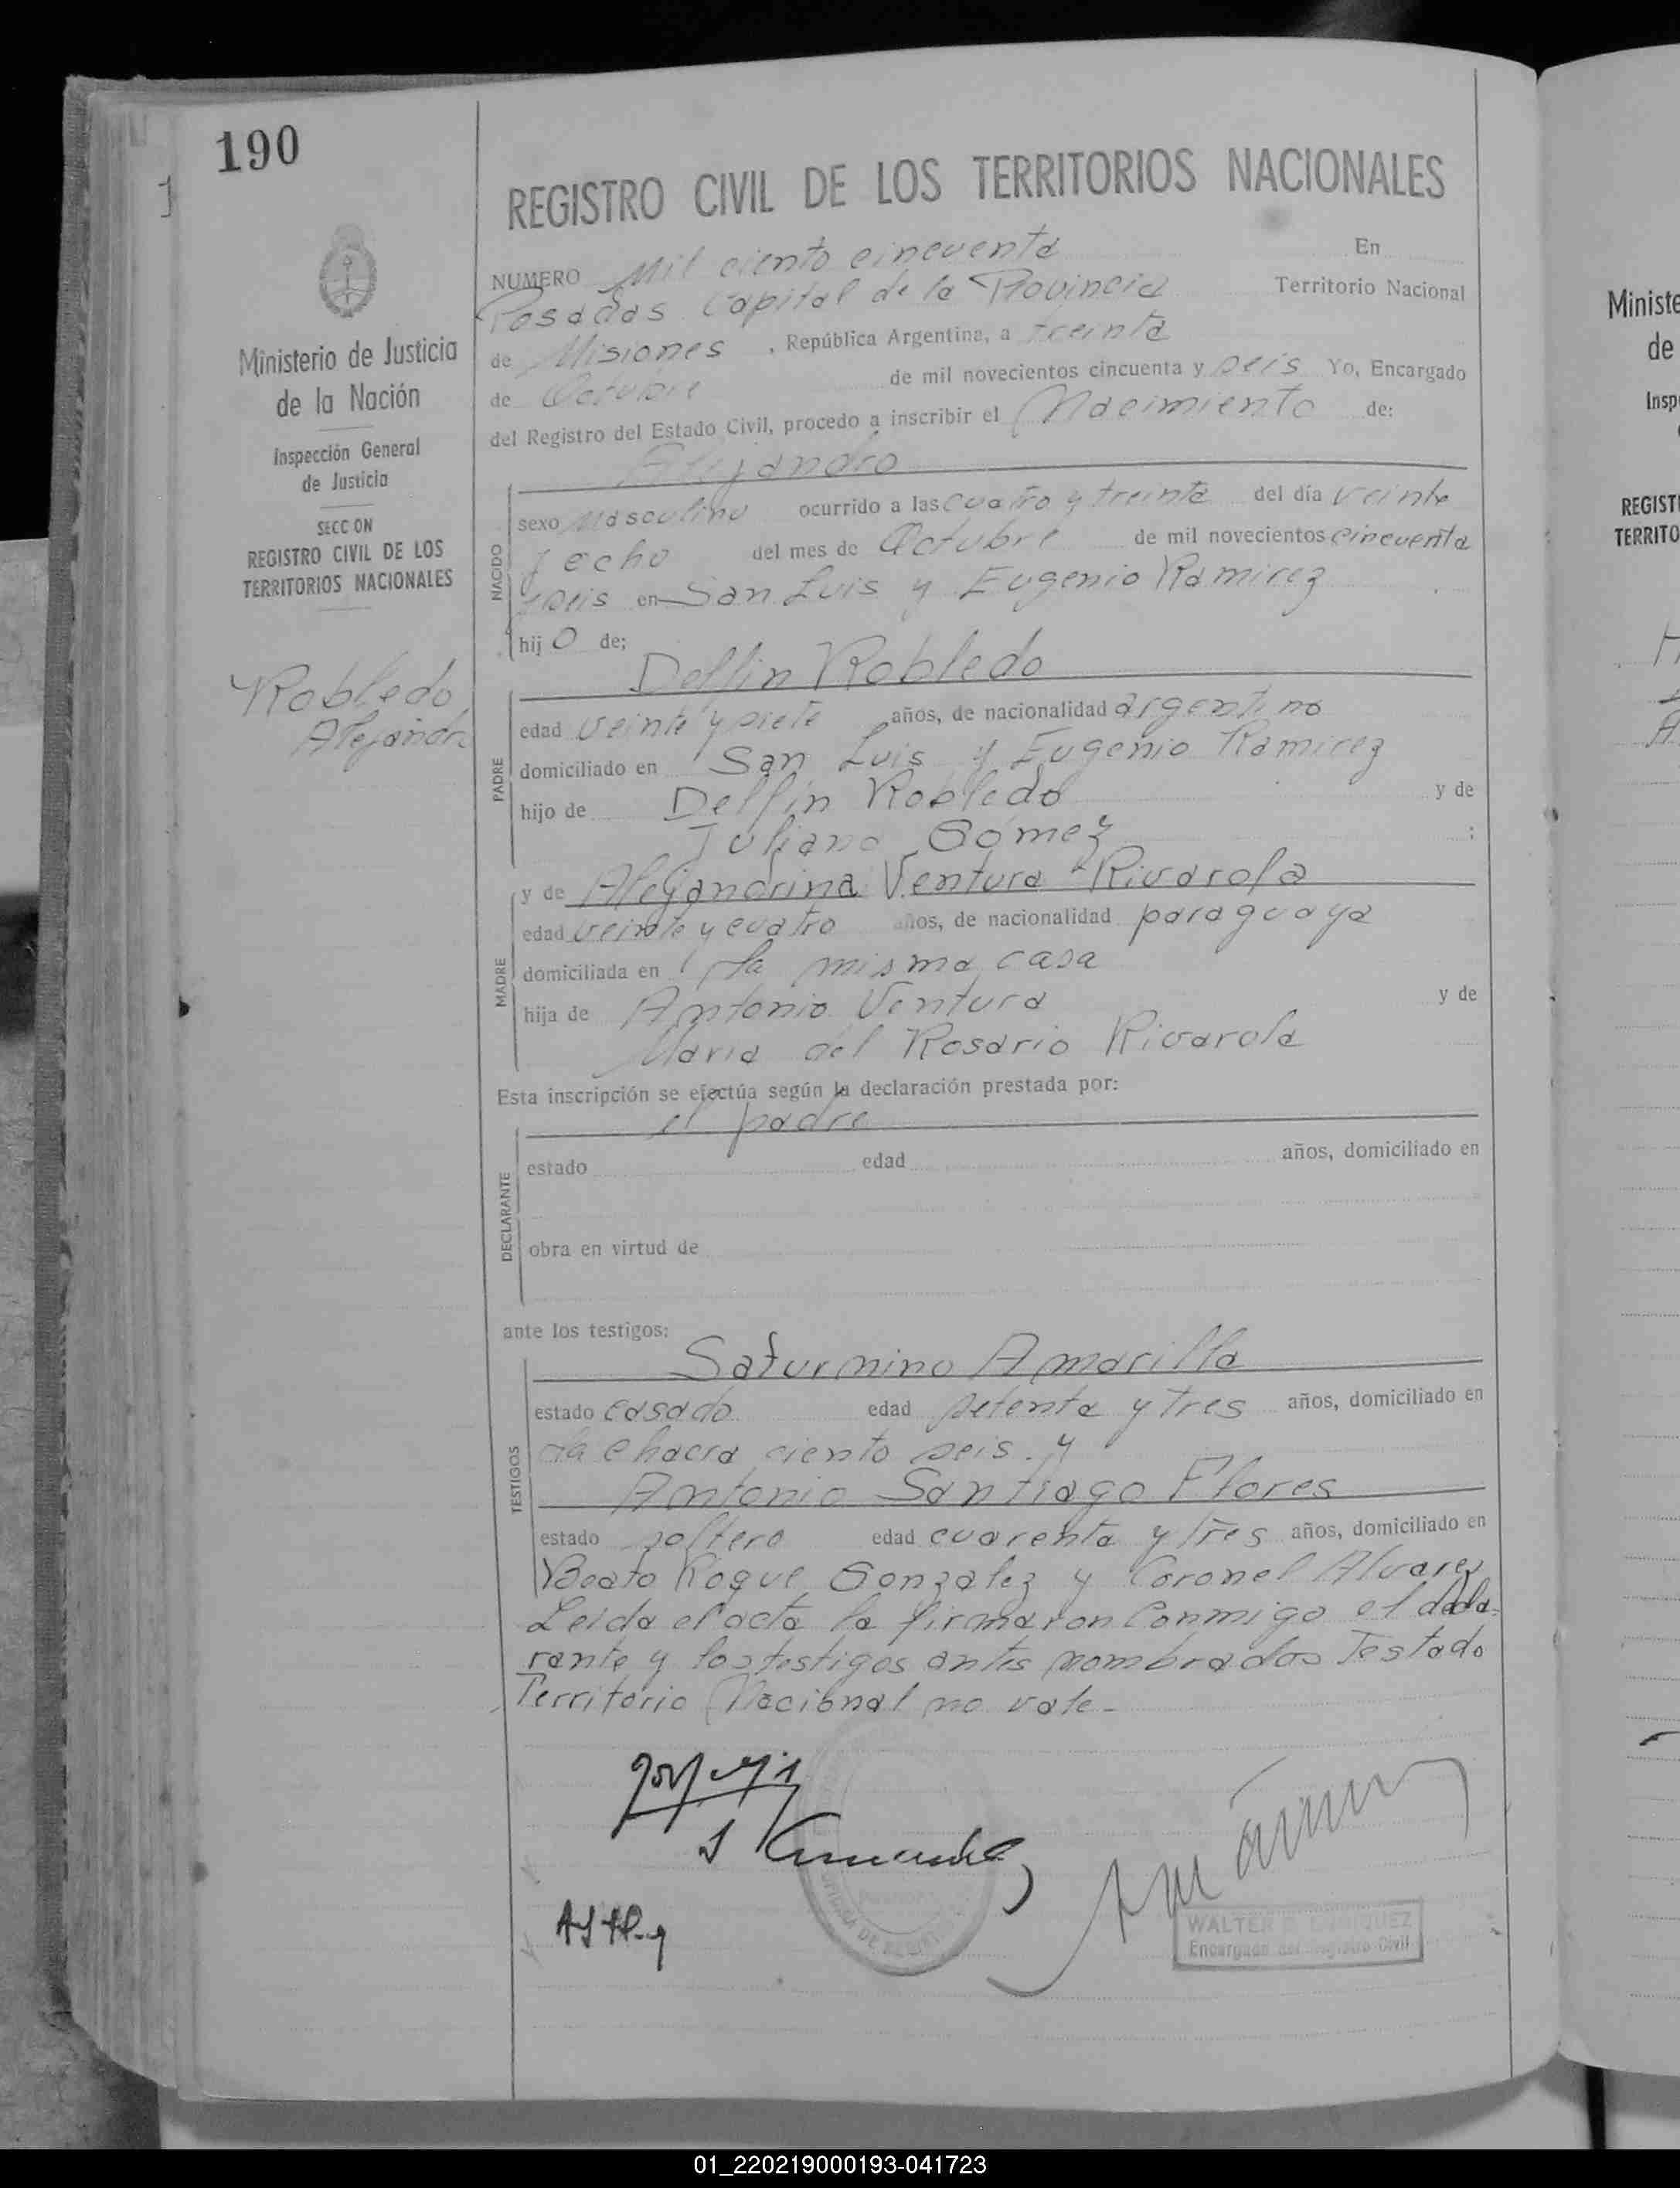 190
REGISTRO CIVIL DE LOS TERRITORIOS NACIONALES
Ministerio de Justicia
de la Nación
Inspección General
de Justicia
SECCION
REGISTRO CIVIL DE LOS
TERRITORIOS NACIONALES
Robledo
Alejandro
NUMERO Mil ciento cincuenta En
Posadas Capital de la Provincia Territorio Nacional
de Misiones, República Argentina, a treinta
de Octubre de mil novecientos cincuenta y seis Yo, Encargado
del Registro del Estado Civil, procedo a inscribir el Nacimiento de:
Alejandro
NACIDO
sexo Masculino ocurrido a las cuatro y treinta del día veinte
y ocho del mes de Octubre de mil novecientos cincuenta
y seis en San Luis y Eugenio Ramirez
hijo de;
Delfin Robledo
PADRE
edad veinte y siete años, de nacionalidad argentino
domiciliado en San Luis y Eugenio Ramirez
hijo de Delfin Robledo y de
Juliana Gómez ;
MADRE
y de Alejandrina Ventura Rivarola
edad veinte y cuatro años, de nacionalidad paraguaya
domiciliada en la misma casa
hija de Antonio Ventura y de
Maria del Rosario Rivarola
Esta inscripción se efectúa según la declaración prestada por:
el padre
DECLARANTE
estado edad años, domiciliado en
obra en virtud de
ante los testigos:
TESTIGOS
Saturnino Amarilla
estado casado edad setenta y tres años, domiciliado en
la chacra ciento seis. y
Antonio Santiago Flores
estado soltero edad cuarenta y tres años, domiciliado en
Beato Roque Gonzalez y Coronel Alvarez
Leida el acta la firmaron conmigo el decla-
rante y los testigos antes nombrados Testado
Territorio Nacional no vale -
WALTER
Encargado del Registro Civil
Ministe
de
Insp
REGIST
TERRITO
01_220219000193-041723